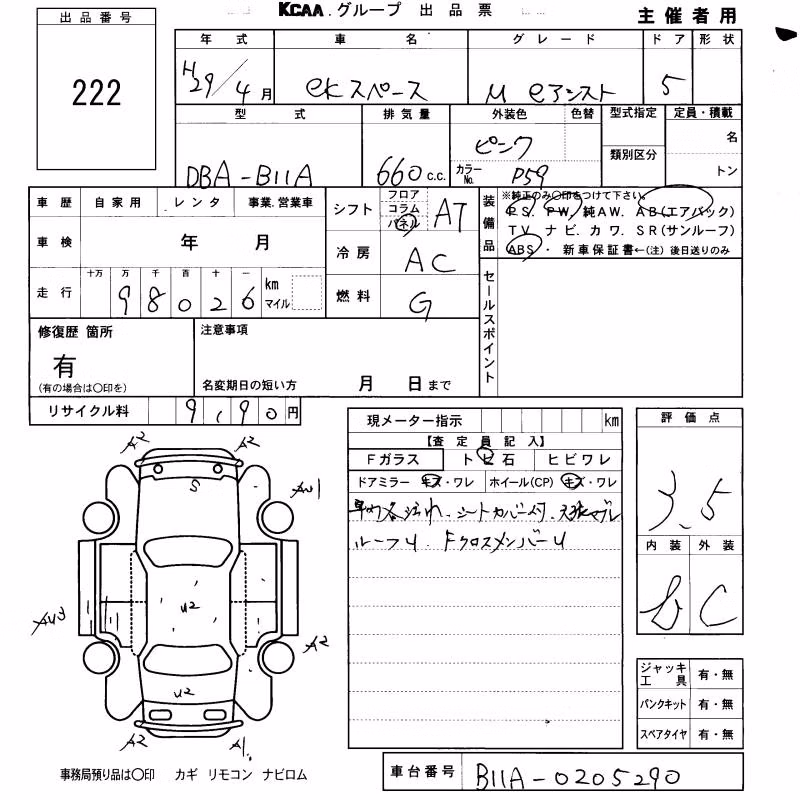 KCAA.グループ 出品票
主催者用
出品番号
222
年式 車名 グレード ドア 形状
H29/4月 eKスペース M eアシスト 5
型式 排気量 外装色 色替 型式指定 定員・積載
DBA-B11A 660c.c. ピンク 名
カラーNo. P59 類別区分 トン
車歴 自家用 レンタ 事業.営業車
車検 年 月
走行 十万 万 千 百 十 一 km マイル
98026
シフト フロア コラム パネル AT
冷房 AC
燃料 G
装備品
※純正のみ〇印をつけて下さい。
PS. PW. 純AW. AB(エアバック)
TV ナビ. カワ. SR(サンルーフ)
ABS ・ 新車保証書←(注) 後日送りのみ
セールスポイント
修復歴 箇所
有
(有の場合は〇印を)
注意事項
名変期日の短い方 月 日まで
リサイクル料 9,90円
現メーター指示 km
【査定員記入】
Fガラス トビ石 ヒビワレ
ドアミラー キズ・ワレ ホイール(CP) キズ・ワレ
シートカバー付.
ルーフU. FクロスメンバーU
評価点
3.5
内装 外装
b C
A2 A2
S
AU1
AU3
U2
A2
U2
A2 A1
ジャッキ工具 有・無
パンクキット 有・無
スペアタイヤ 有・無
事務局預り品は〇印 カギ リモコン ナビロム
車台番号 B11A-0205290